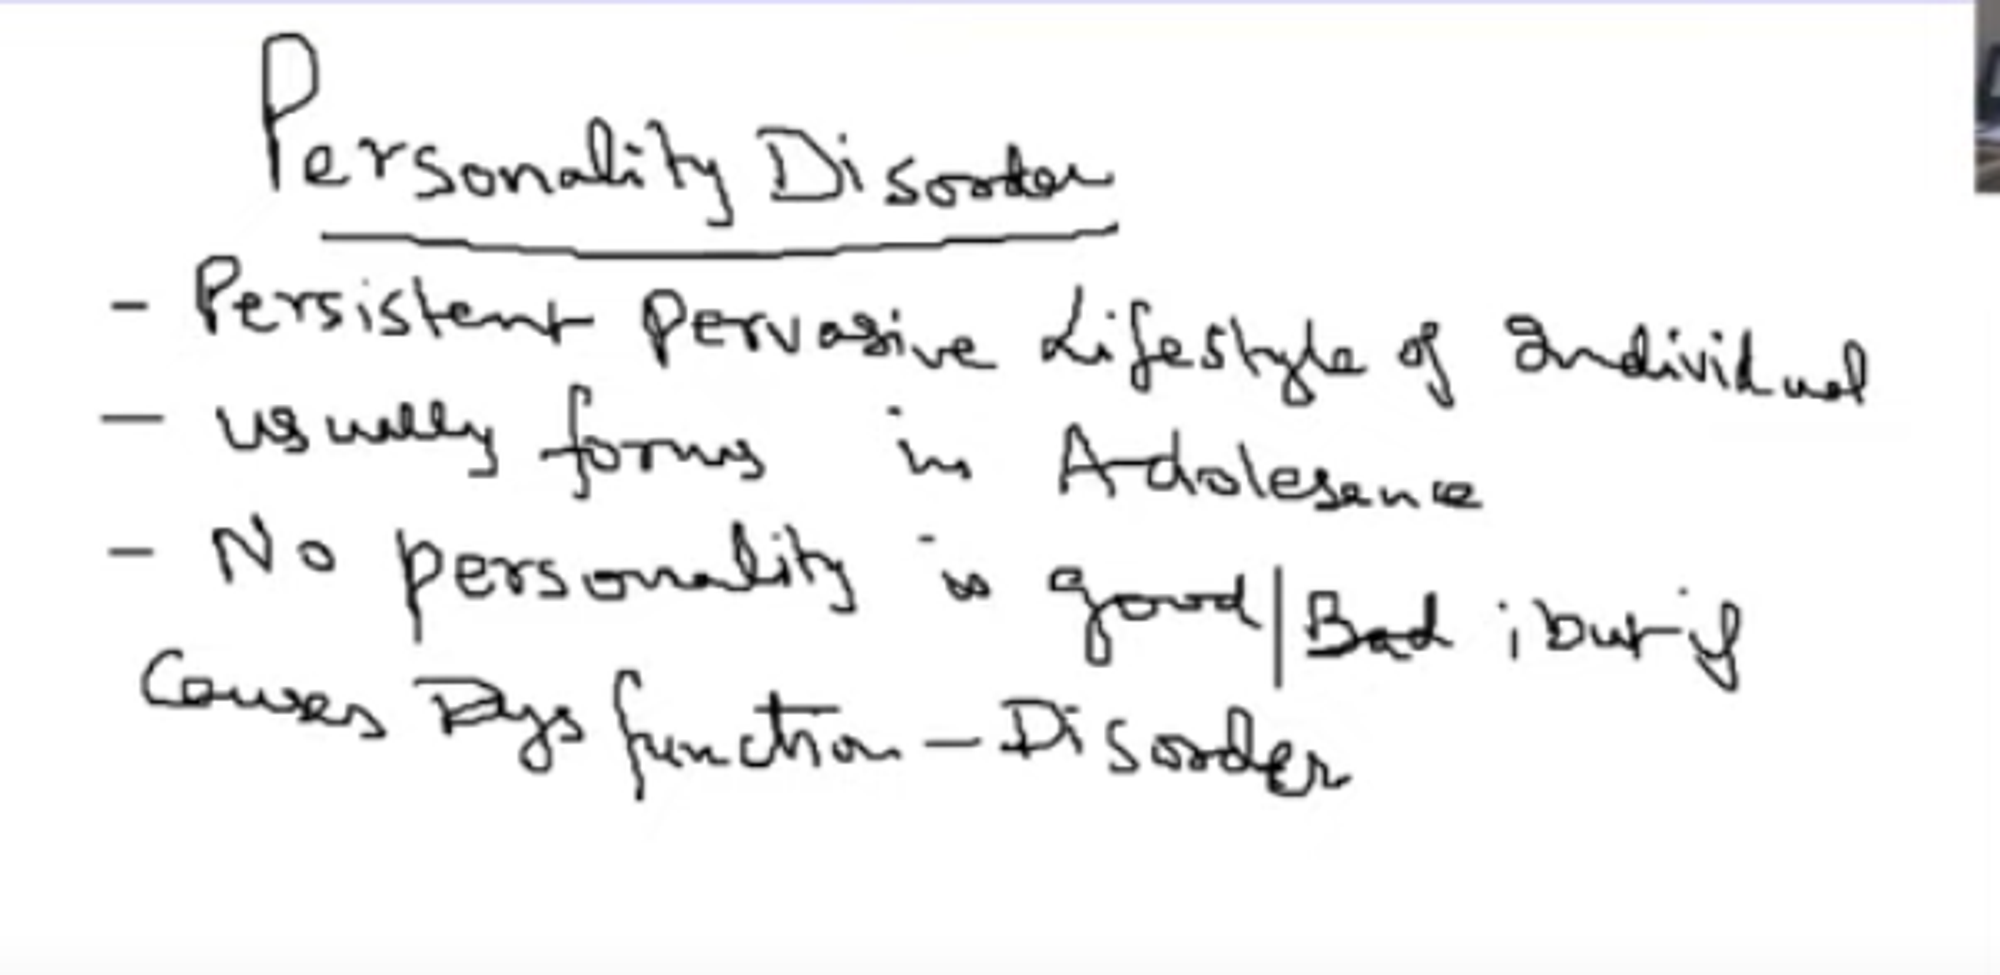 Personality Disorder
- Persistent Pervasive Lifestyle of Individual
- usually forms in Adolesence
- No personality is good/Bad ; but if
Causes Dysfunction - Disorder